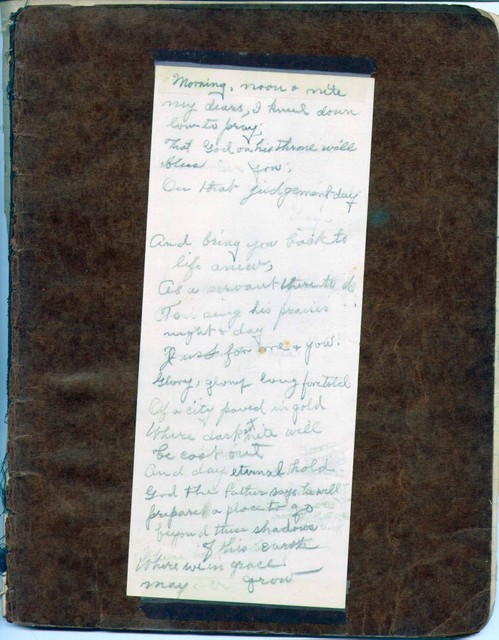 Morning, noon & nite
my dears, I kneel down
low to pray,
That God on his throne will
bless you,
On that judgement day

And bring you back to
life anew,
As a servant there to do
sing his praises
night & day
Just for me & you.
Glory, glory being foretold
Of a city paved in gold
Where dark nite will
be cast out
And day eternal hold
God the father says he will
prepare a place to go
beyond these shadows
of this earth
Where we in grace
may grow